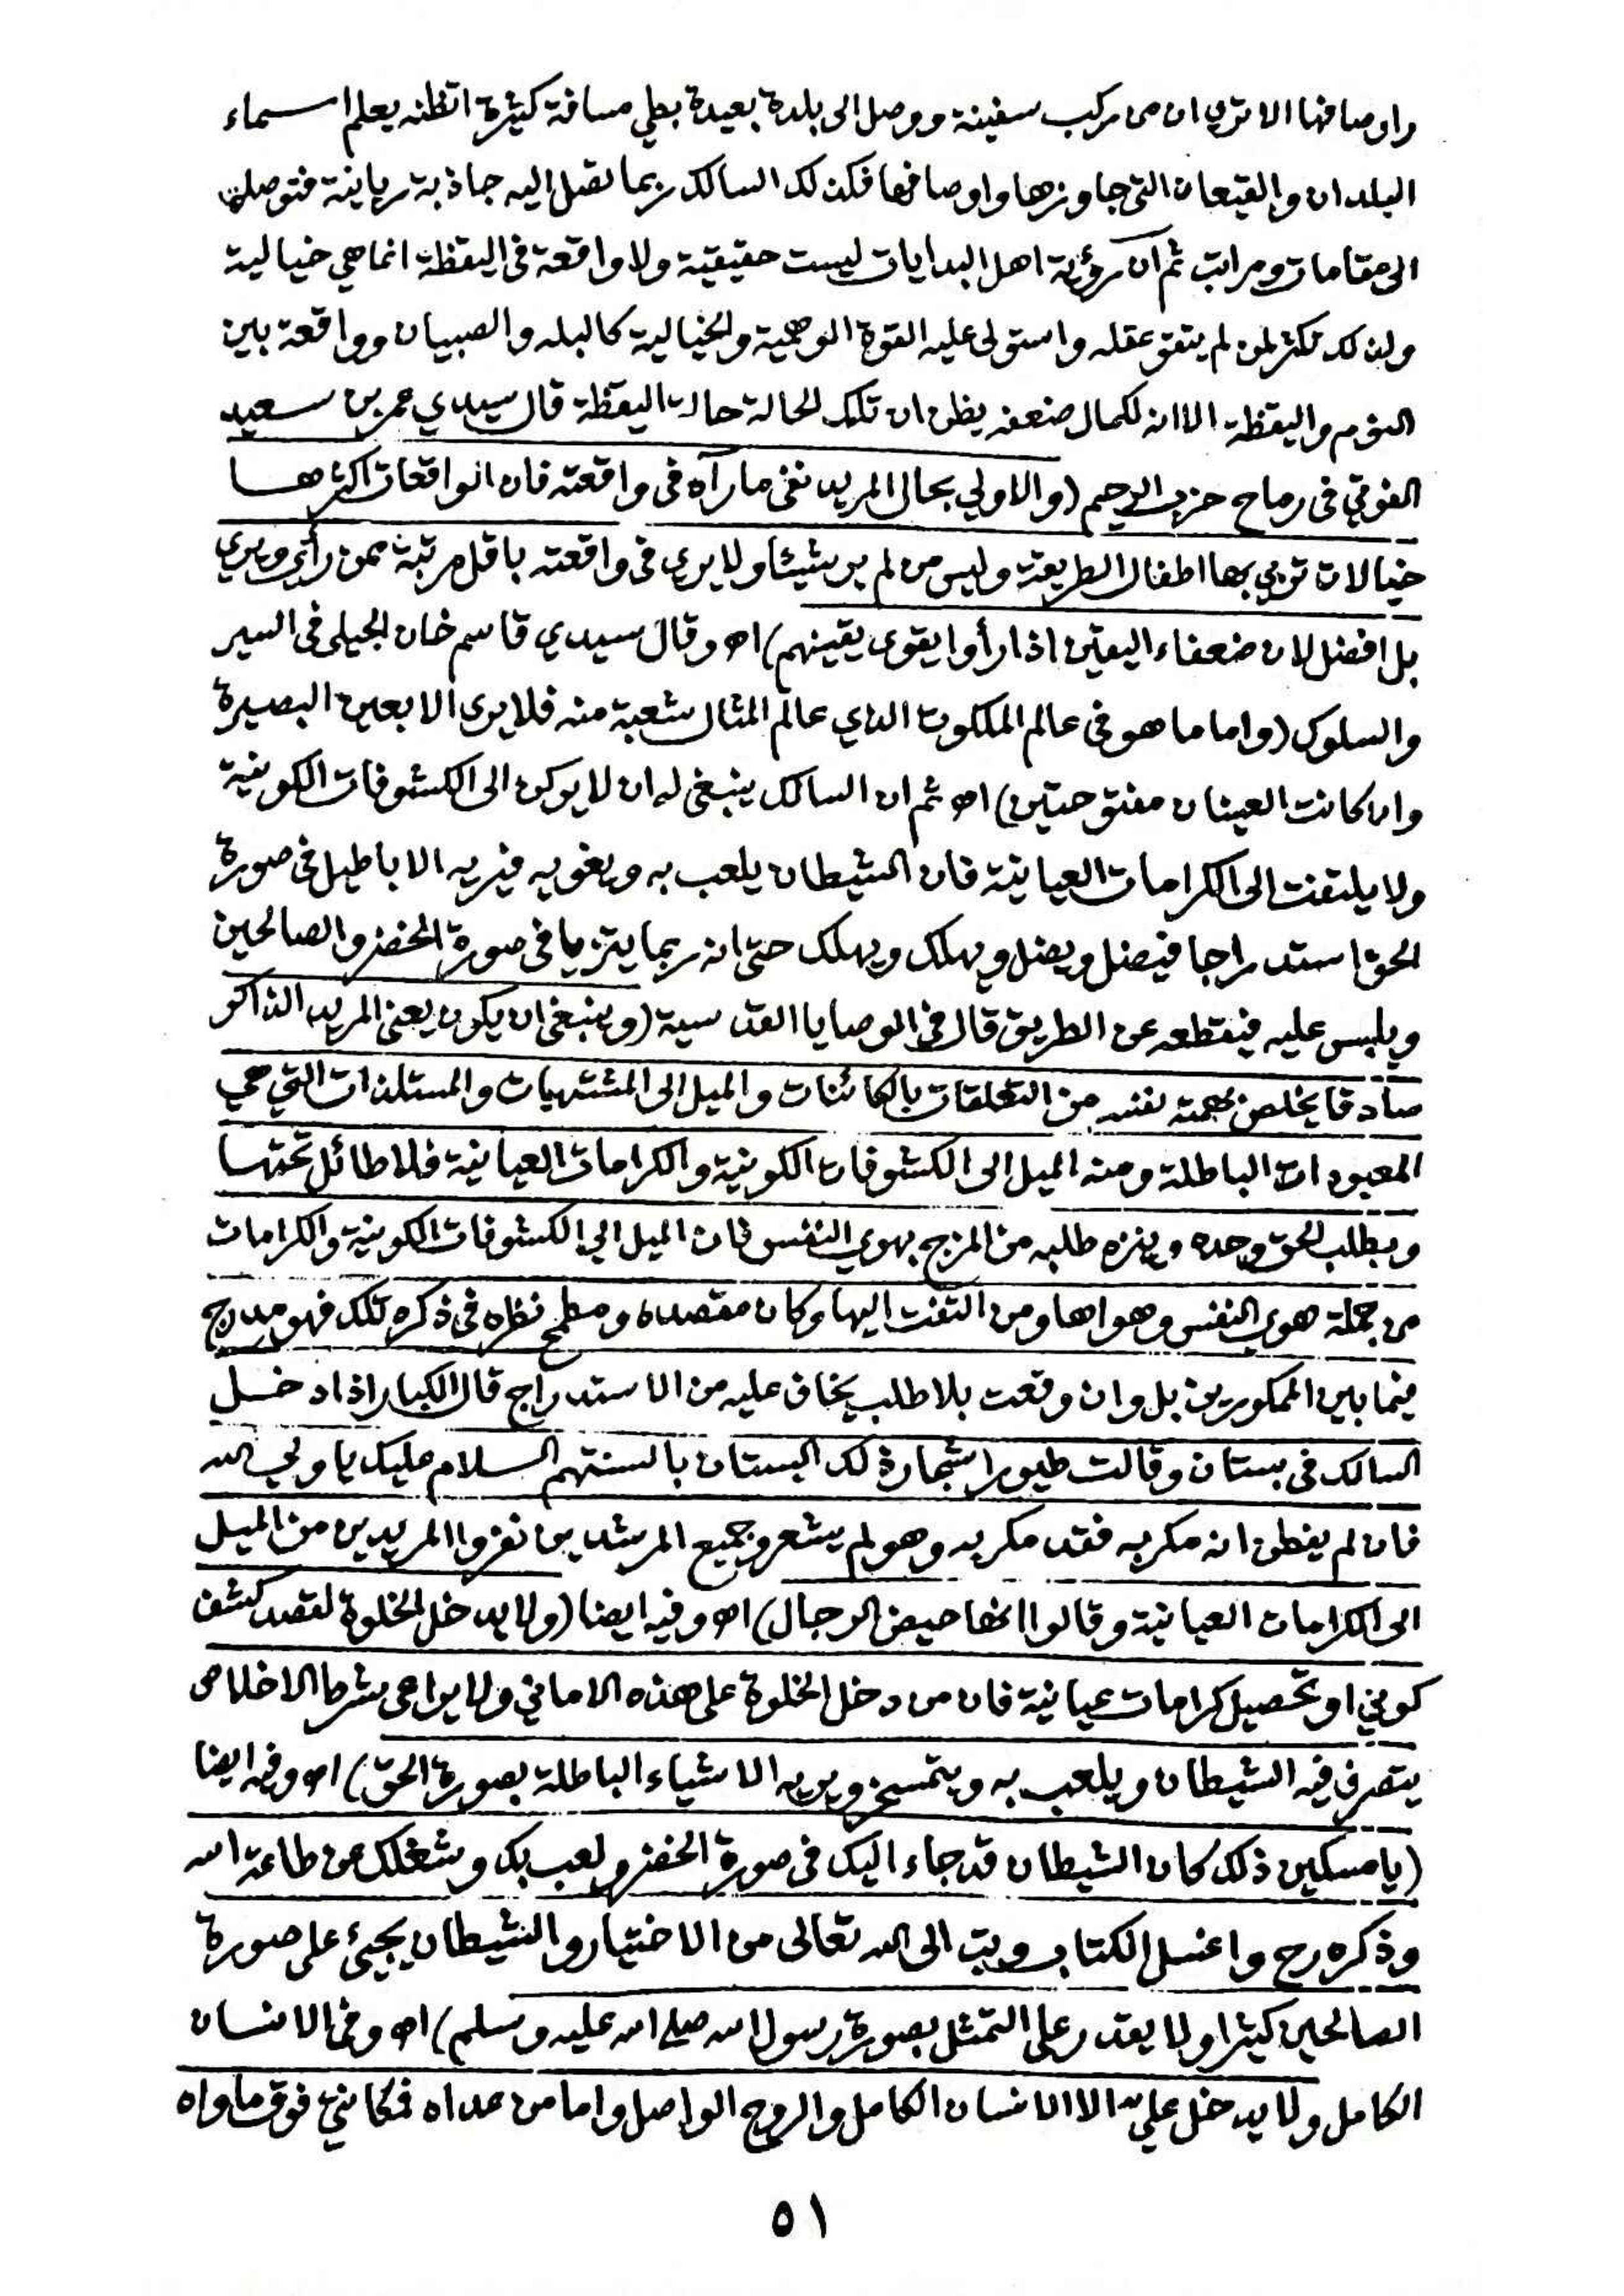 واوصافها الا ترى ان من ركب سفينة ووصل الى بلدة بعيدة بطي مسافة كثيرة اتظنه يعلم اسماء
البلدان والقيعان التي جاوزها واوصافها فكذلك السالك ربما تصل اليه جاذبة ربانية فتوصله
الى مقامات ومراتب ثم ان رؤية اهل البدايات ليست حقيقية ولا واقعة في اليقظة انما هي خيالية
ولذلك تكثر لمن لم يتقو عقله واستولى عليه القوة الوهمية والخيالية كالبله والصبيان وواقعة بين
النوم واليقظة الا انه لكمال ضعفه يظن ان تلك الحالة حالة اليقظة قال سيدي عمر بن سعيد
الفوتي في رماح حزب الرحيم (والاولي بحال المريد نفي ما رآه في واقعته فان الواقعات اكثرها
خيالات تربي بها اطفال الطريقة وليس من لم ير شيئا ولا يرى في واقعته باقل مرتبة ممن رأى ويري
بل افضل لان ضعفاء اليقين اذا رأوا يقوى يقينهم) اه وقال سيدي قاسم خان الجيلي في السير
والسلوك (واما ما هو في عالم الملكوت الذي عالم المثال شعبة منه فلا يرى الا بعين البصيرة
وان كانت العينان مفتوحتين) اه ثم ان السالك ينبغي له ان لا يركن الى الكشوفات الكونية
ولا يلتفت الى الكرامات العيانية فان الشيطان يلعب به ويغويه فيريه الاباطيل في صورة
الحق استدراجا فيضل ويضل ويهلك ويهلك حتى انه ربما يتزيا في صورة الخضر والصالحين
ويلبس عليه فيقطعه عن الطريق قال في الوصايا القدسية (وينبغي ان يكون يعني المريد الذاكر
صادقا يخلص بهمته نفسه من التعلقات بالكائنات والميل الى المشتهيات والمستلذات التي هي
المعبودات الباطلة ومنه الميل الى الكشوفات الكونية والكرامات العيانية فلا طائل تحتها
ويطلب الحق وحده وينزه طلبه من المزج بهوي النفس فان الميل الي الكشوفات الكونية والكرامات
من جملة هوي النفس وهواها ومن التفت اليها وكان مقصده ومطمح نظره في ذكره تلك فهو مدرج
فيما بين الممكورين بل وان وقعت بلا طلب يخاف عليه من الاستدراج قال الكبار اذا دخل
السالك في بستان وقالت طيور اشجار ذلك البستان بالسنتهم السلام عليك يا ولي الله
فان لم يفطن انه مكر به فقد مكر به وهو لم يشعر وجميع المرشدين نفروا المريدين من الميل
الى الكرامات العيانية وقالوا انها حيض الرجال) اه وفيه ايضا (ولا يدخل الخلوة لقصد كشف
كوني او تحصيل كرامات عيانية فان من دخل الخلوة على هذه الاماني ولا يراعي شرط الاخلاص
يتصرف فيه الشيطان ويلعب به ويتمسخر ويريه الاشياء الباطلة بصورة الحق) اه وفيه ايضا
(يا مسكين ذلك كان الشيطان قد جاء اليك في صورة الخضر ولعب بك وشغلك عن طاعة الله
وذكره رح واغسل الكتاب وتب الى الله تعالى من الاختيار والشيطان يجيئ على صورة
الصالحين كثيرا ولا يقدر على التمثل بصورة رسول الله صلى الله عليه وسلم) اه وفي الانسان
الكامل ولا يدخل عليه الا الانسان الكامل والروح الواصل واما من عداه فمكانه فوق ماواه
٥١